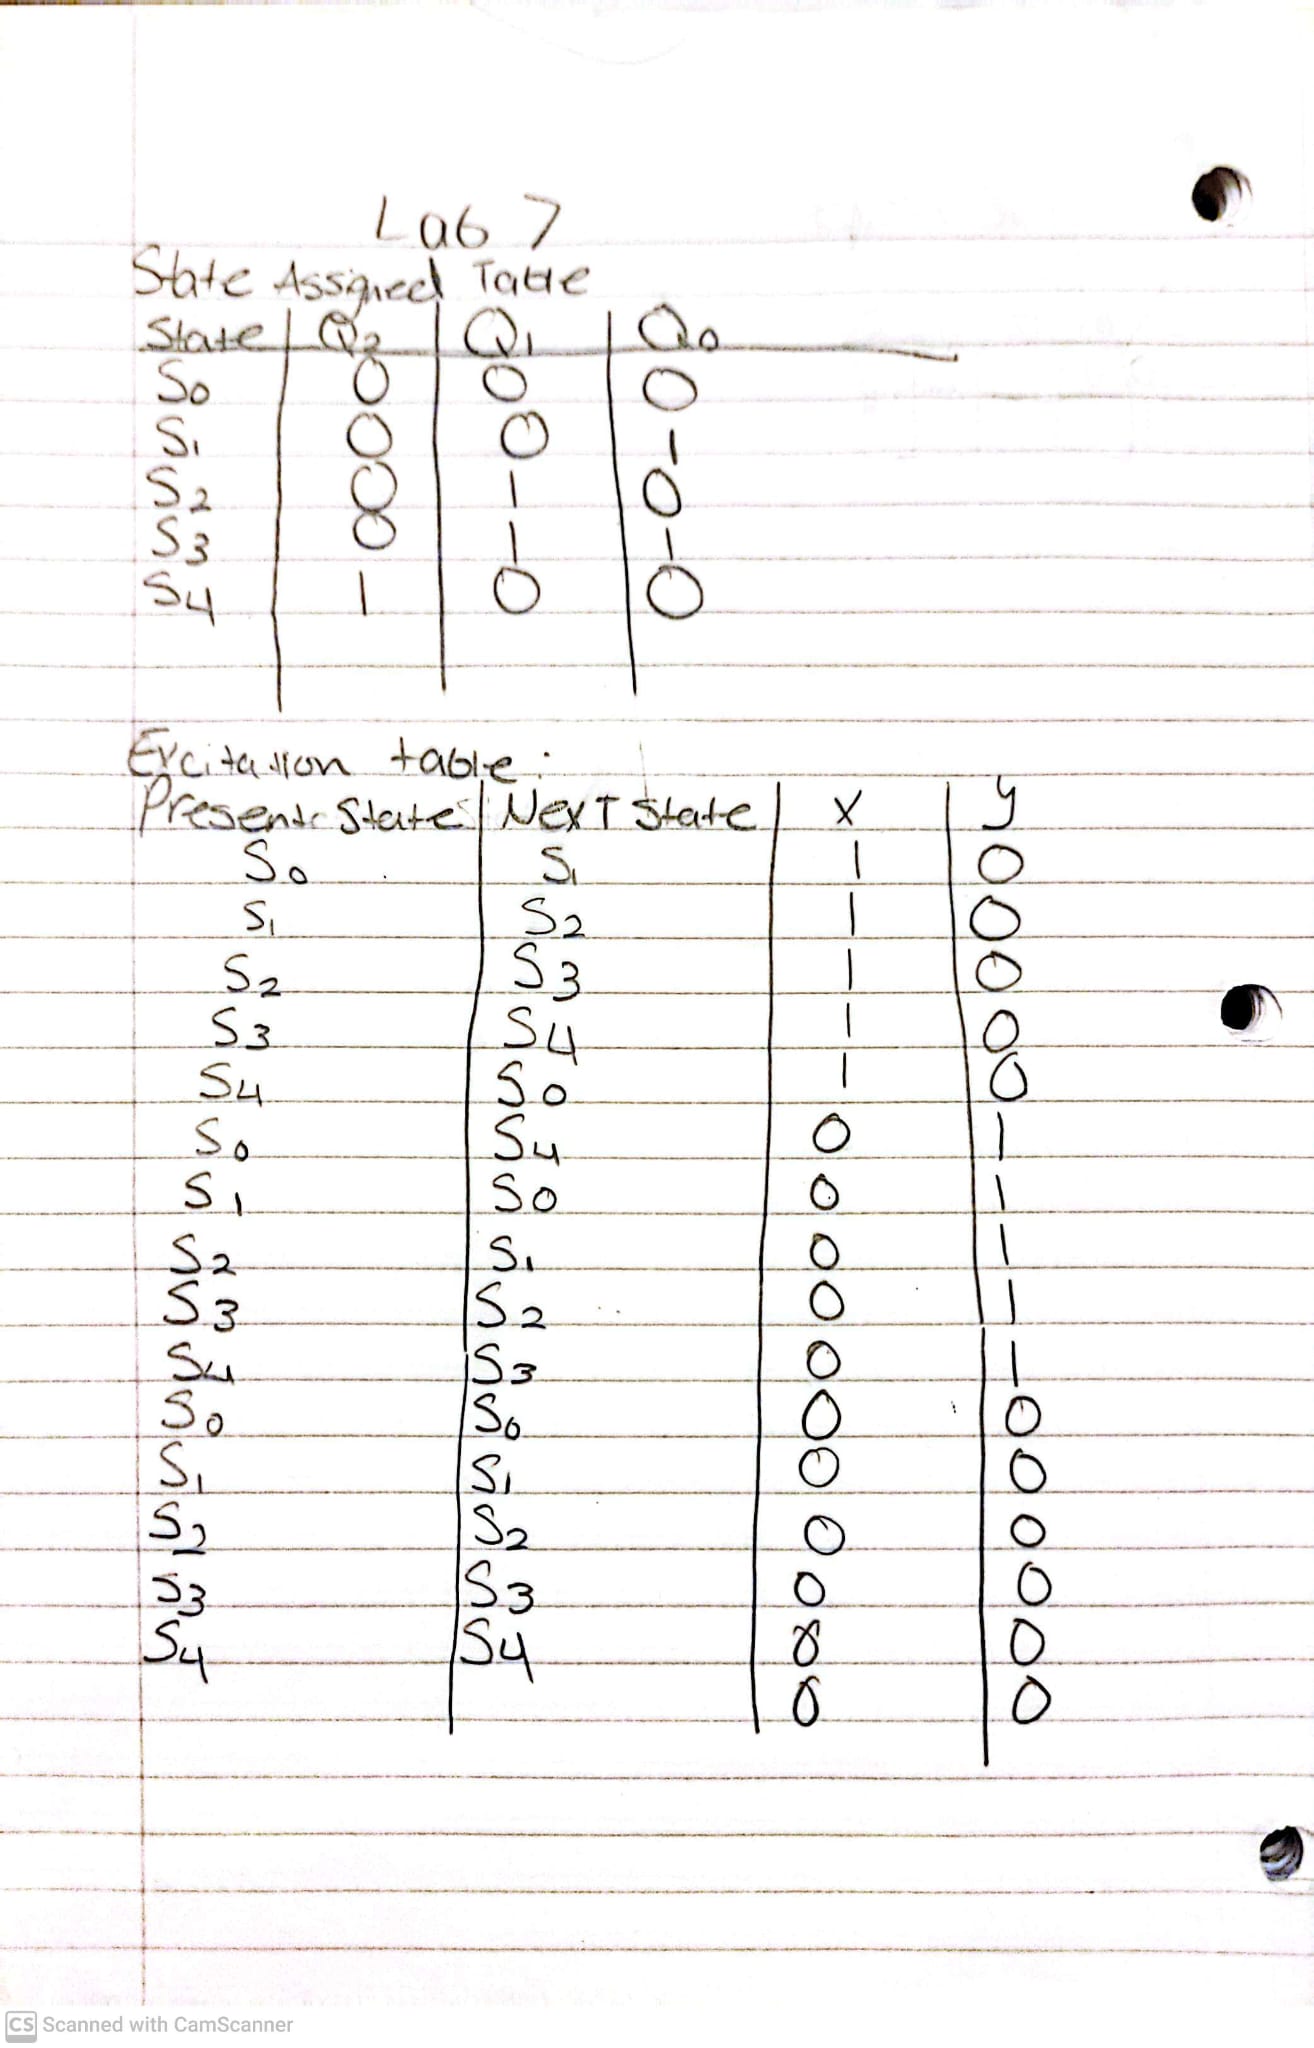 Lab 7
State Assigned Table
State Q2 Q1 Q0
S0 0 0 0
S1 0 0 1
S2 0 1 0
S3 0 1 1
S4 1 0 0
Excitation table:
Present State Next State X y
S0 S1 1 0
S1 S2 1 0
S2 S3 1 0
S3 S4 1 0
S4 S0 1 0
S0 S4 0 1
S1 S0 0 1
S2 S1 0 1
S3 S2 0 1
S4 S3 0 1
S0 S0 0 0
S1 S1 0 0
S2 S2 0 0
S3 S3 0 0
S4 S4 0 0
0 0
CS Scanned with CamScanner